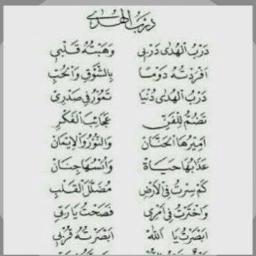 درب الهدى
درب الهدى دربي وهبته قلبي
أفردته دوما بالشوق والحب
درب الهدى دنيا تعور في صدري
تضم للفن عجائب الفكر
أميرها الحنان والنور والإيمان
عذابها حياة وأنسها جنان
كم سرت في الأرض مضلل القلب
واخترت في أمري فصحت يا ربي
أبصرت يا الله أبصرته قربي